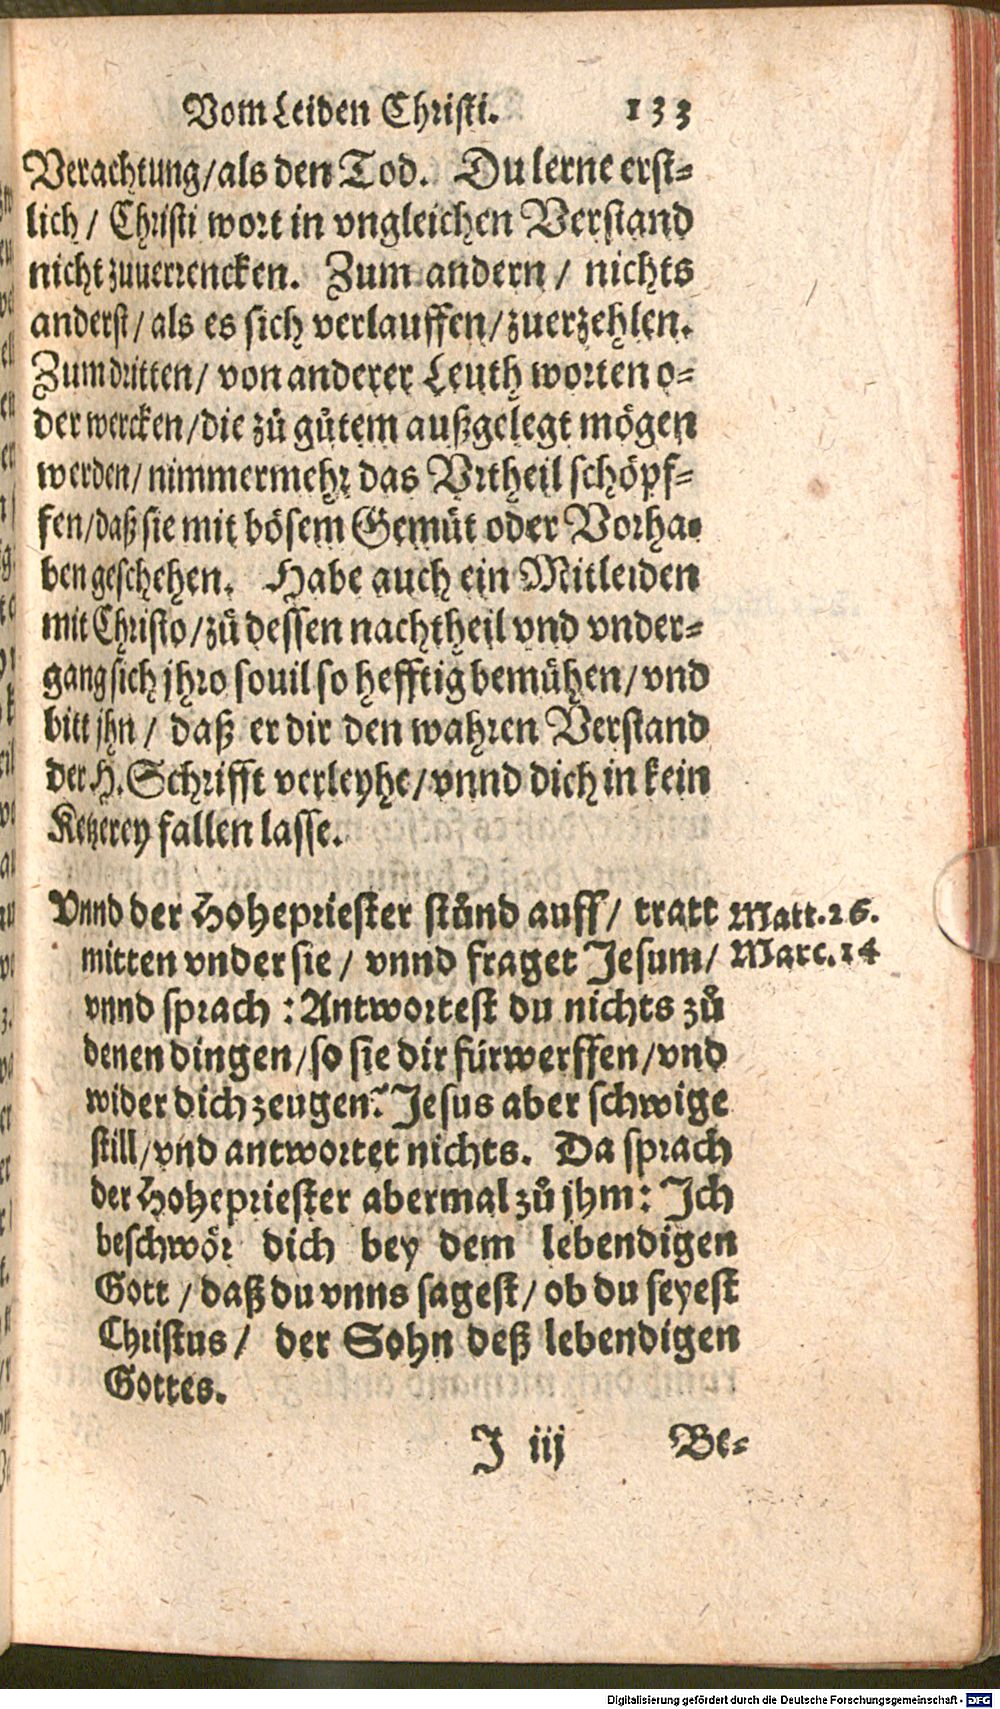 Vom Leiden Christi. 133
Verachtung/als den Tod. Du lerne erst-
lich / Christi wort in vngleichen Verstand
nicht zuuerrencken. Zum andern / nichts
anderst/als es sich verlauffen/zuerzehlen.
Zum dritten/ von anderer Leuth worten o-
der wercken/die zů gůtem außgelegt mögen
werden/nimmermehr das Vrtheil schöpf-
fen/daß sie mit bösem Gemüt oder Vorha-
ben geschehen. Habe auch ein Mitleiden
mit Christo/zů dessen nachtheil vnd vnder-
gang sich jhro souil so hefftig bemühen/vnd
bitt jhn / daß er dir den wahren Verstand
der H. Schrifft verleyhe/vnnd dich in kein
Ketzerey fallen lasse.
Vnnd der Hohepriester stůnd auff/ tratt Matt.26.
mitten vnder sie / vnnd fraget Jesum/ Marc.14
vnnd sprach : Antwortest du nichts zů
denen dingen/so sie dir fürwerffen/vnd
wider dich zeugen? Jesus aber schwige
still/vnd antwortet nichts. Da sprach
der Hohepriester abermal zů jhm: Ich
beschwör dich bey dem lebendigen
Gott / daß du vnns sagest/ ob du seyest
Christus/ der Sohn deß lebendigen
Gottes.
J iij Be-
Digitalisierung gefördert durch die Deutsche Forschungsgemeinschaft - DFG